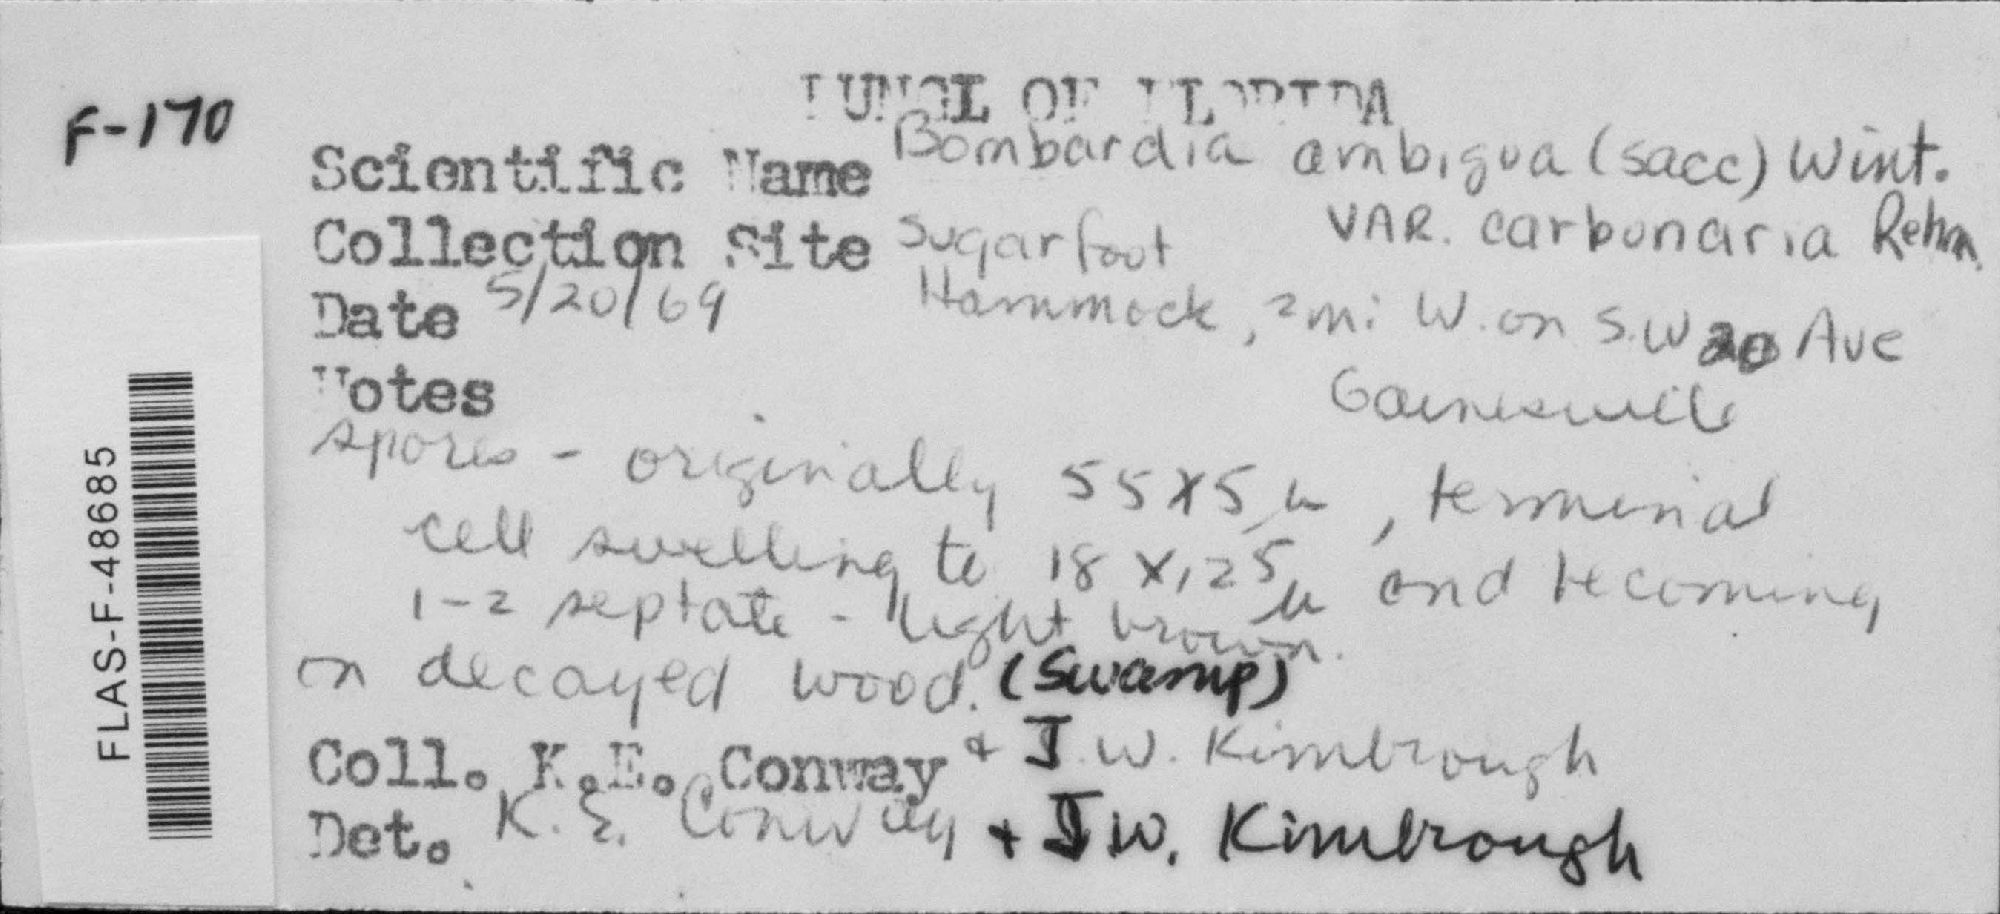 F-170
FUNGI OF FLORIDA
Scientific Name Bombardia ambigua (sacc) Wint.
VAR. carbonaria Rehm.
Collection Site Sugarfoot
Hammock, 2 mi W. on S.W 20 Ave
Gainesville
Date 5/20/69
Notes
spores - originally 55X5 µ, terminal
cell swelling to 18 X 12.5 µ and becoming
1-2 septate - light brown.
on decayed wood. (Swamp)
Coll. K.E. Conway + J.W. Kimbrough
Det. K.E. Conway + J W. Kimbrough
FLAS-F-48685